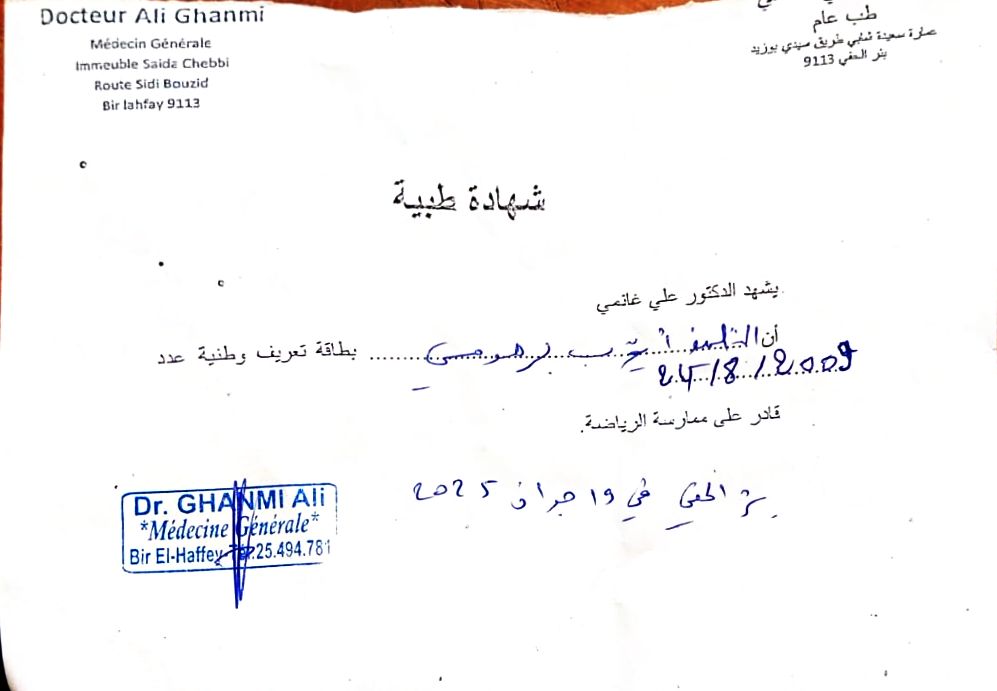 Docteur Ali Ghanmi
Médecin Générale
Immeuble Saida Chebbi
Route Sidi Bouzid
Bir lahfay 9113
طب عام
عمارة سعيدة شابي طريق سيدي بوزيد
بئر الحفي 9113
شهادة طبية
يشهد الدكتور علي غانمي
أن التلميذ ........ بطاقة تعريف وطنية عدد
24/8/2009
قادر على ممارسة الرياضة.
بئر الحفي في 19 جوان 2025
Dr. GHANMI Ali
*Médecine Générale*
Bir El-Haffey Tel:25.494.781